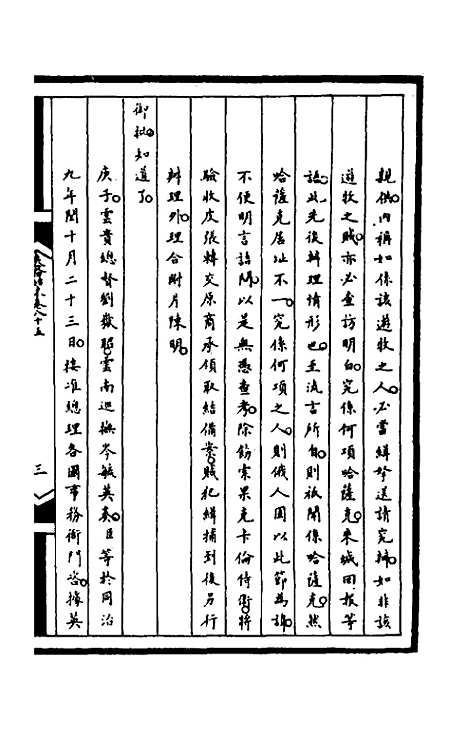 親供內稱如係該遊牧之人必當緝拏送請究辦如非該
遊牧之賊亦必查訪明白究係何項哈薩克來城回報等
語此先後辦理情形也至流言所自則祇聞係哈薩克然
哈薩克居址不一究係何項之人則俄人固以此節為諱
不便明言詰問以是無憑查考除飭索果克卡倫侍衛將
驗收皮張轉交原商承領取結備案賊犯緝捕到後另行
辦理外理合附片陳明
御批知道了
庚子雲貴總督劉嶽昭雲南巡撫岑毓英奏臣等於同治
九年閏十月二十三日接准總理各國事務衙門咨據英
卷八十五
三